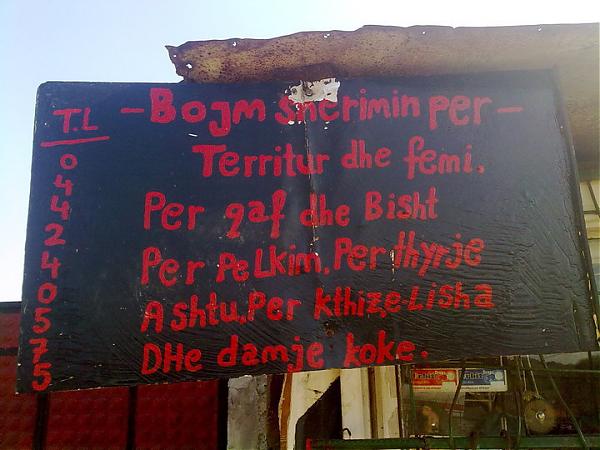 T.L
0
4
4
2
4
0
5
7
5
-Bojm sherimin per-
Territur dhe femi.
Per qaf dhe Bisht
Per PeLkim, Per thyrje
Ashtu, Per kthize-Lisha
DHe damje koke.